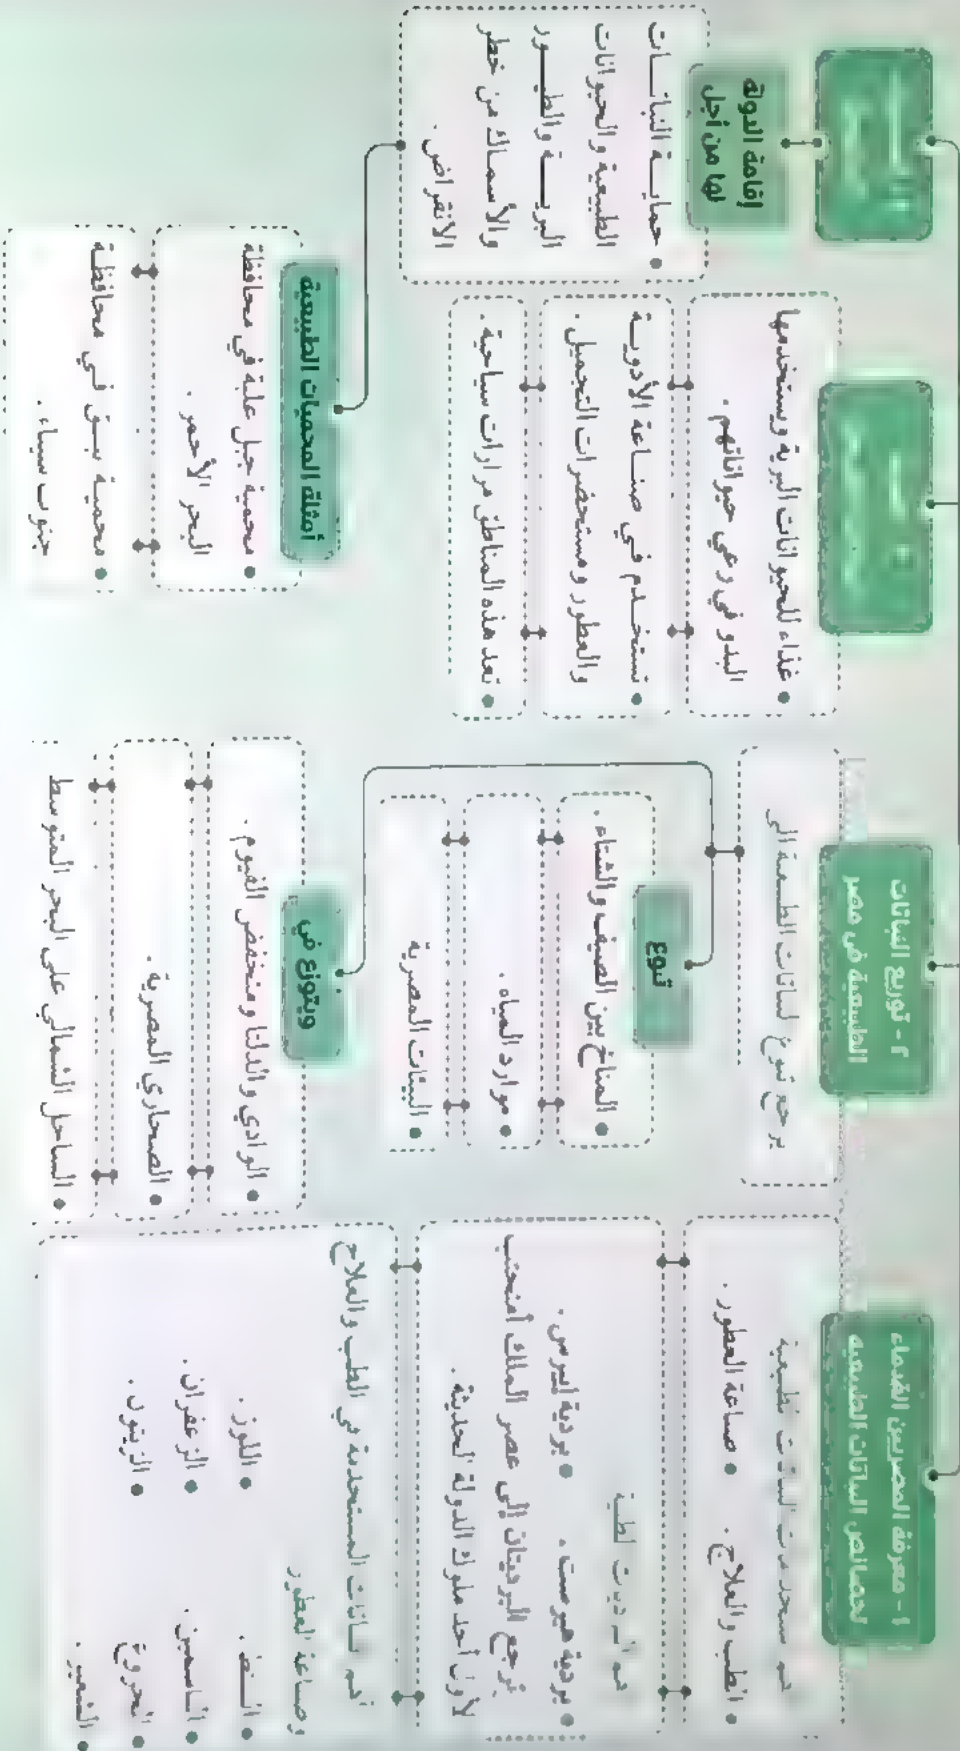 ١- معرفة المصريين القدماء
لخصائص النباتات الطبيعية
الطب والعلاج . • صناعة العطور .
• بردية هيرست . • بردية إيبرس .
ترجع البرديتان إلى عصر الملك أمنحتب
الأول أحد ملوك الدولة الحديثة .
المستخدمة في الطب والعلاج
وصناعة العطور
• اللوز .
• الياسمين . • الزعفران .
• الخروع • الزيتون .
• الشعير .
٢- توزيع النباتات
الطبيعية في مصر
يرجع تنوع النباتات الطبيعية إلى
تنوع
• المناخ بين الصيف والشتاء .
• موارد المياه .
• البيئات المصرية
ويتوزع في
• الوادي والدلتا ومنخفض الفيوم .
• الصحاري المصرية .
• الساحل الشمالي على البحر المتوسط
• غذاء للحيوانات البرية ويستخدمها
البدو في رعي حيواناتهم .
• تستخدم في صناعة الأدوية
والعطور ومستحضرات التجميل .
• تعد هذه المناطق مزارات سياحية .
إقامة الدولة
لها من أجل
• حماية النباتات
الطبيعية والحيوانات
البرية والطيور
والأسماك من خطر
الانقراض .
أمثلة المحميات الطبيعية
• محمية جبل علبة في محافظة
البحر الأحمر .
• محمية نبق في محافظة
جنوب سيناء .